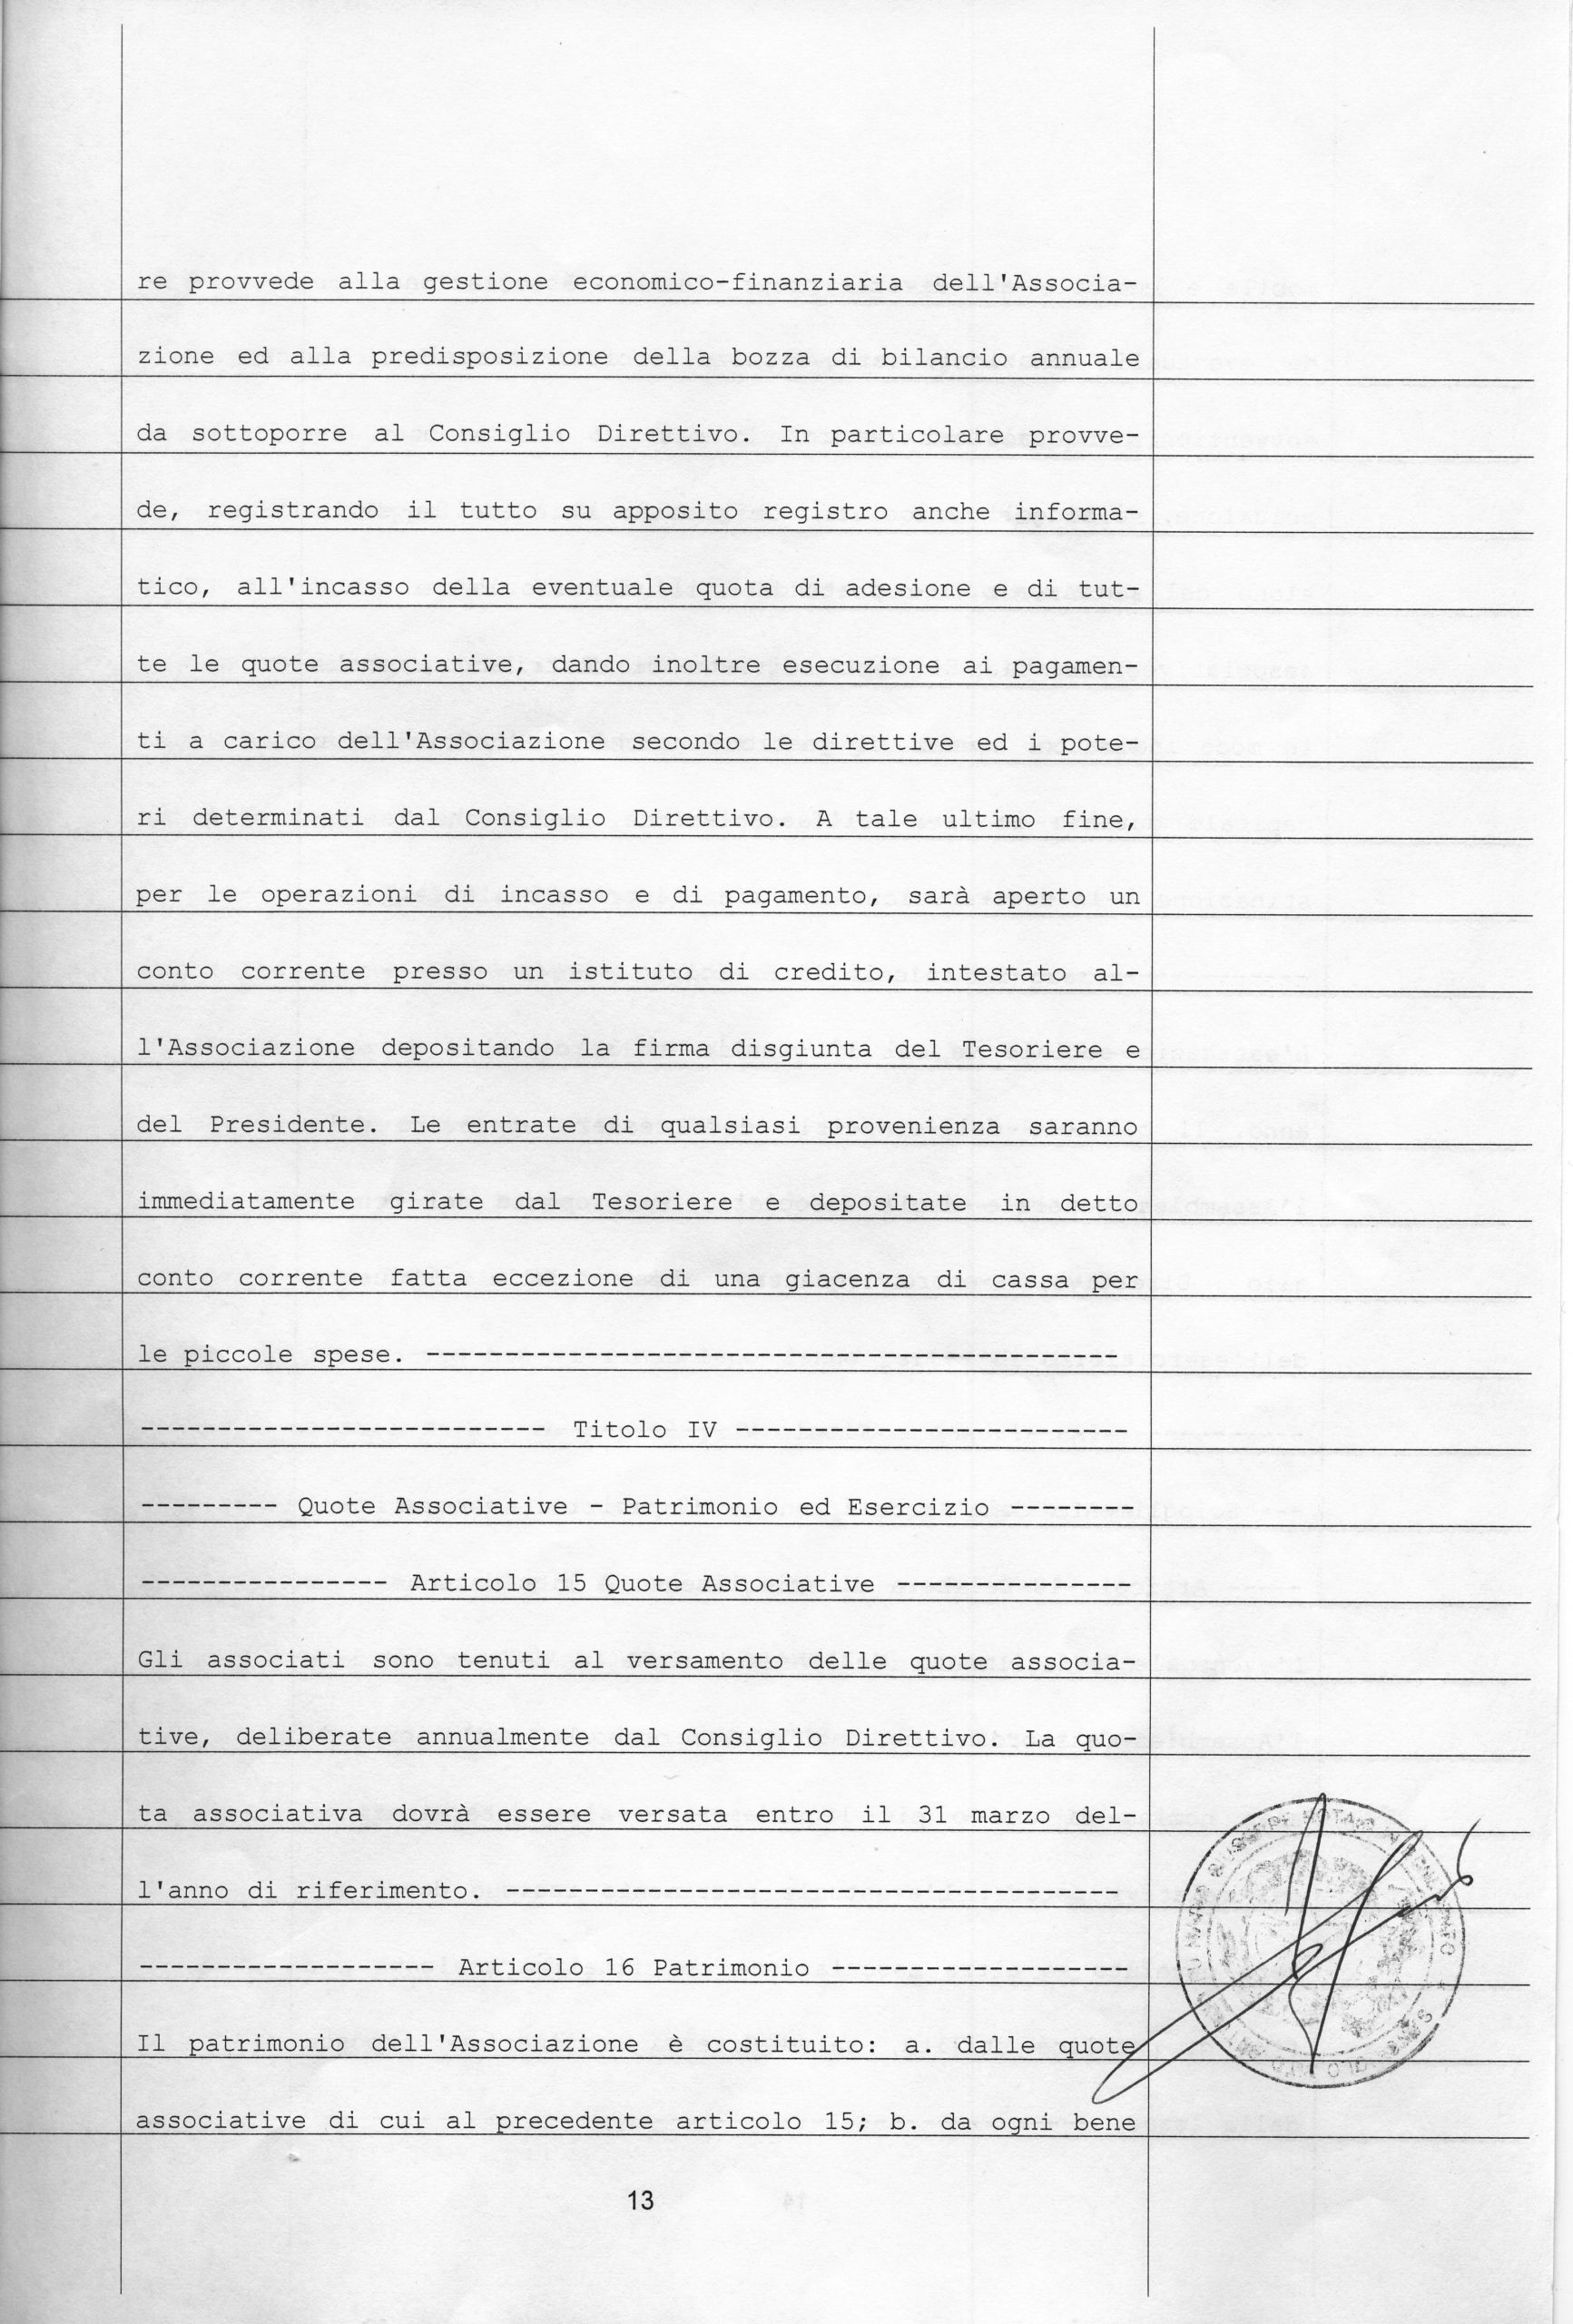 re provvede alla gestione economico-finanziaria dell'Associa-
zione ed alla predisposizione della bozza di bilancio annuale
da sottoporre al Consiglio Direttivo. In particolare provve-
de, registrando il tutto su apposito registro anche informa-
tico, all'incasso della eventuale quota di adesione e di tut-
te le quote associative, dando inoltre esecuzione ai pagamen-
ti a carico dell'Associazione secondo le direttive ed i pote-
ri determinati dal Consiglio Direttivo. A tale ultimo fine,
per le operazioni di incasso e di pagamento, sarà aperto un
conto corrente presso un istituto di credito, intestato al-
l'Associazione depositando la firma disgiunta del Tesoriere e
del Presidente. Le entrate di qualsiasi provenienza saranno
immediatamente girate dal Tesoriere e depositate in detto
conto corrente fatta eccezione di una giacenza di cassa per
le piccole spese. --------------------------------------------
-------------------------- Titolo IV -------------------------
--------- Quote Associative - Patrimonio ed Esercizio --------
---------------- Articolo 15 Quote Associative ---------------
Gli associati sono tenuti al versamento delle quote associa-
tive, deliberate annualmente dal Consiglio Direttivo. La quo-
ta associativa dovrà essere versata entro il 31 marzo del-
l'anno di riferimento. ---------------------------------------
------------------- Articolo 16 Patrimonio -------------------
Il patrimonio dell'Associazione è costituito: a. dalle quote
associative di cui al precedente articolo 15; b. da ogni bene
13